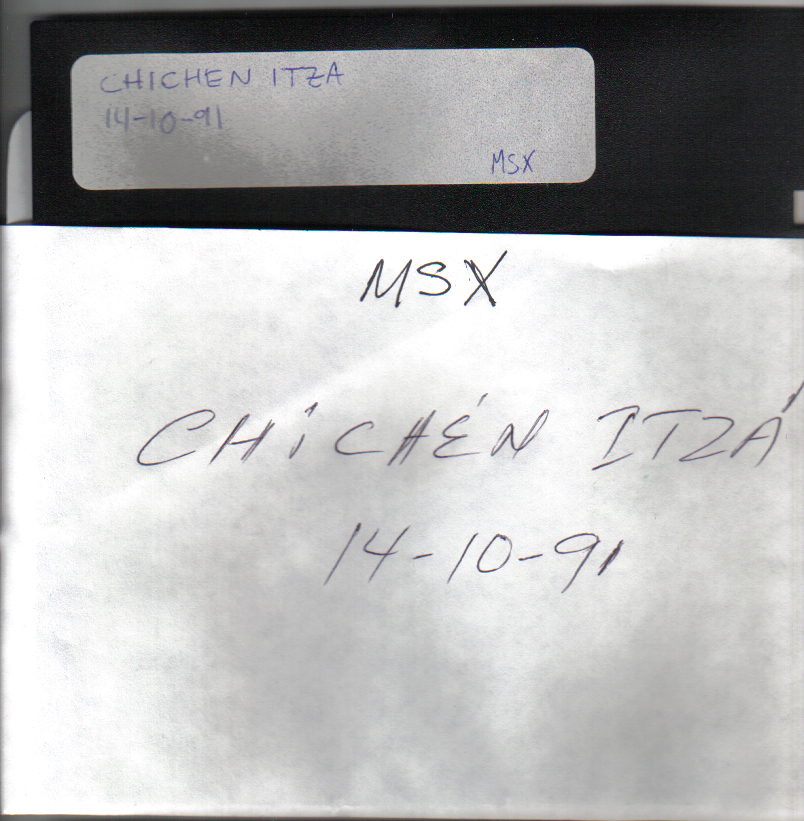 CHICHEN ITZA
14-10-91
MSX
MSX
CHiCHÉN ITZÁ
14-10-91